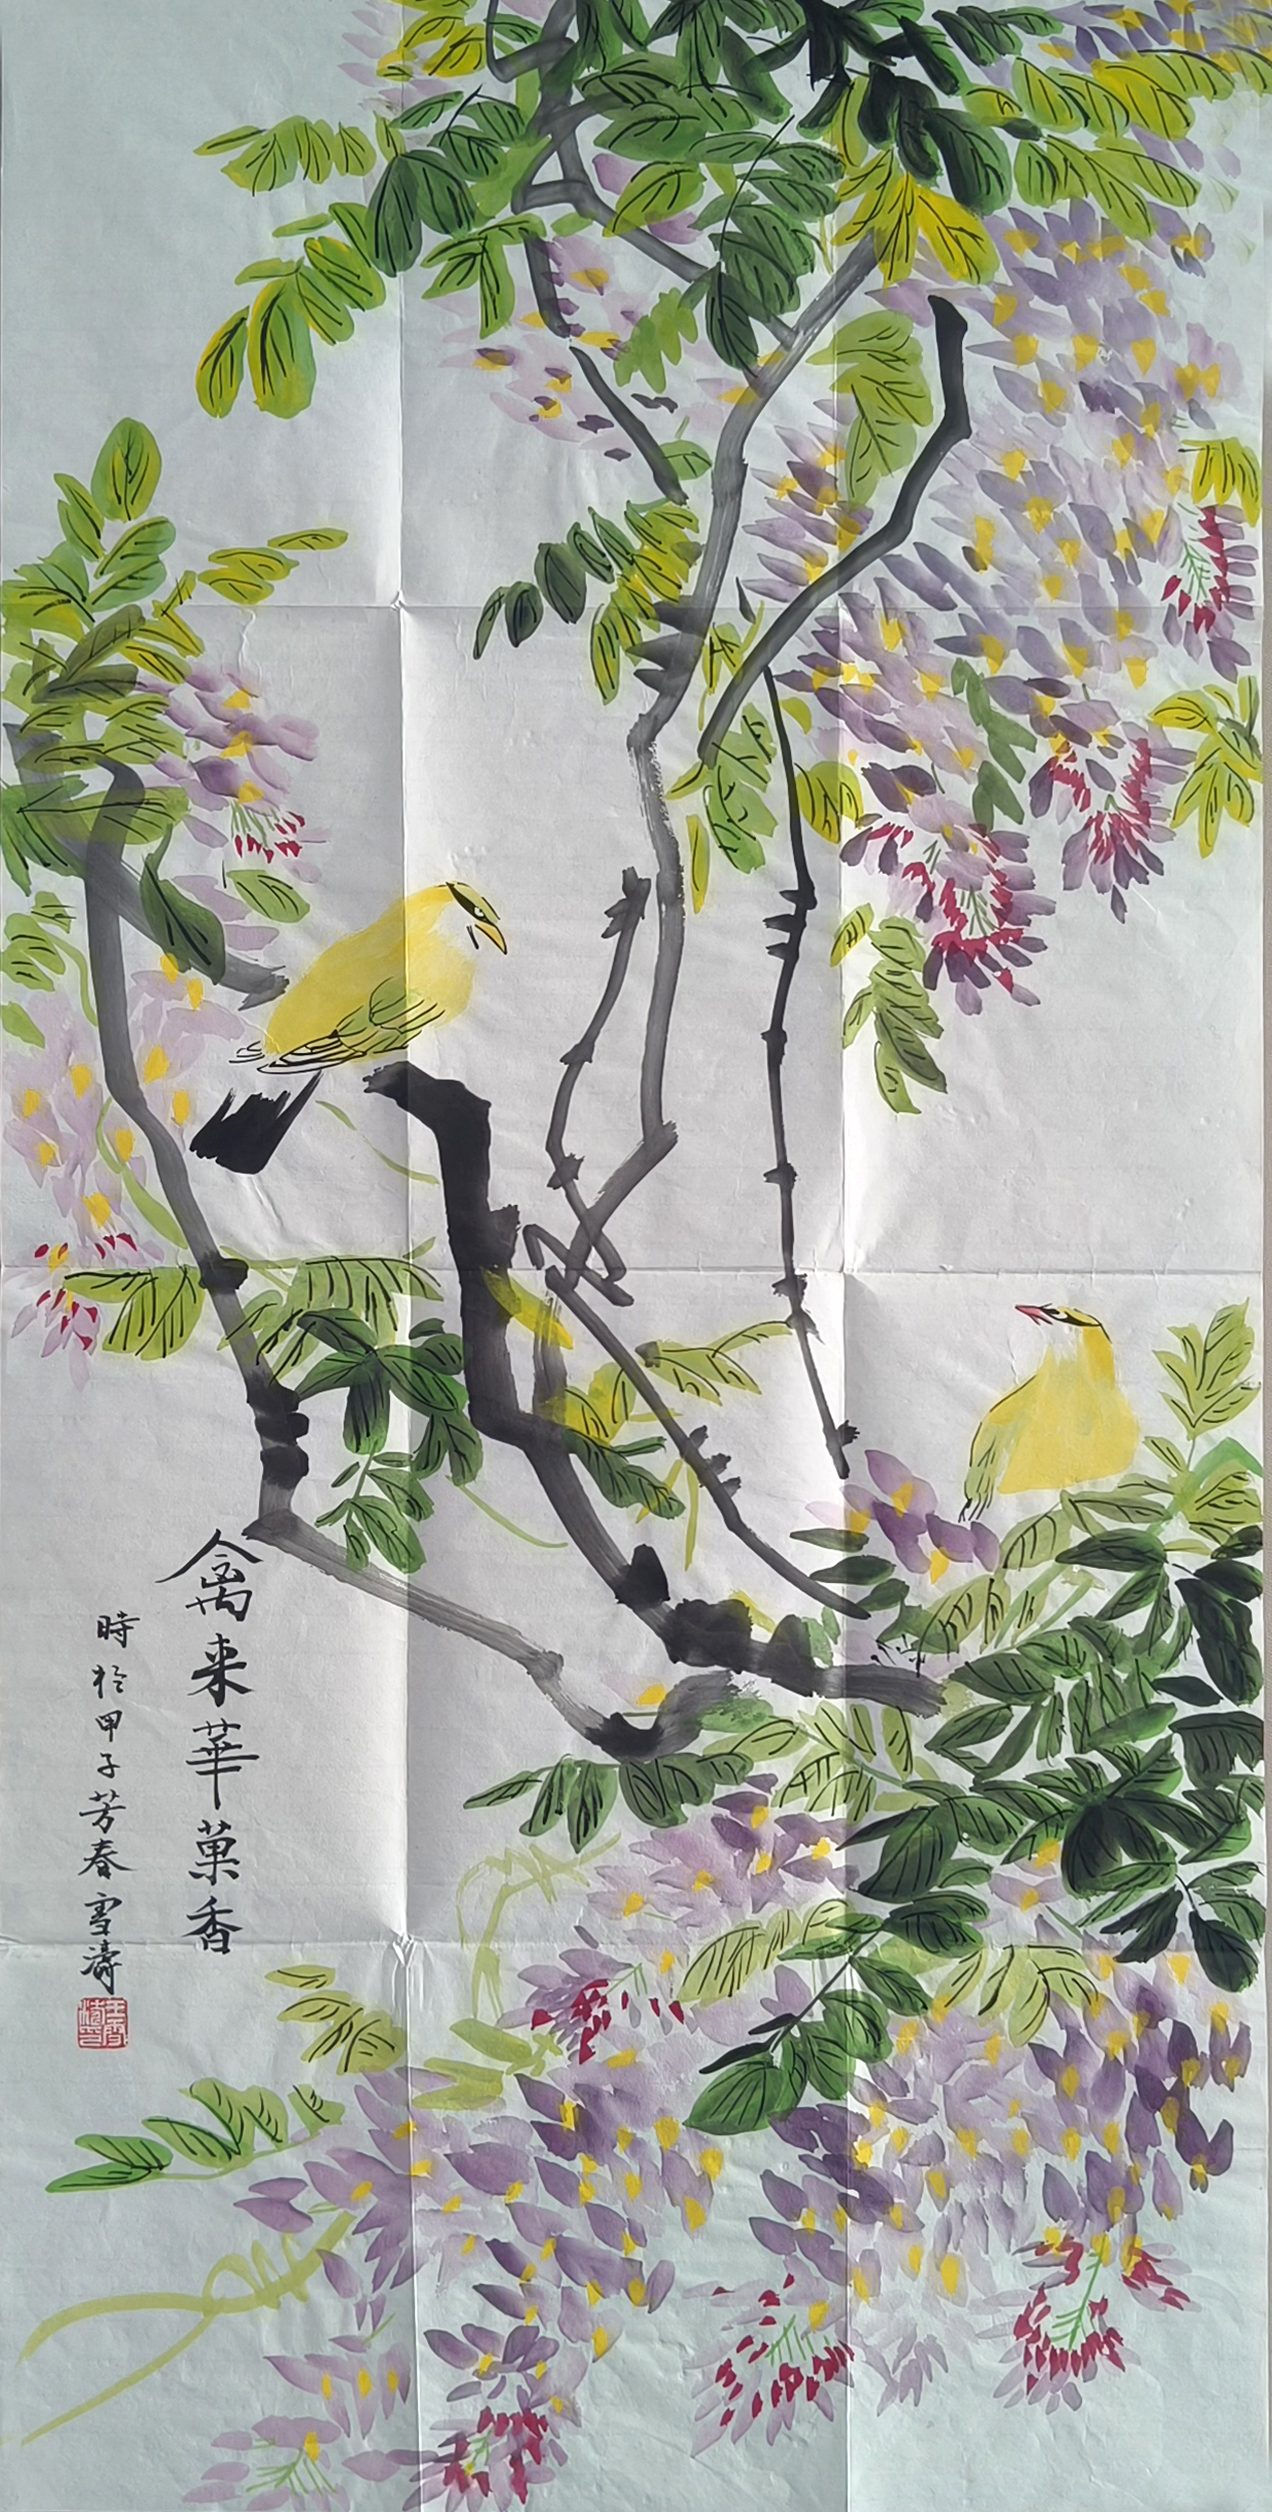 禽来華菓香
時於甲子芳春雪濤